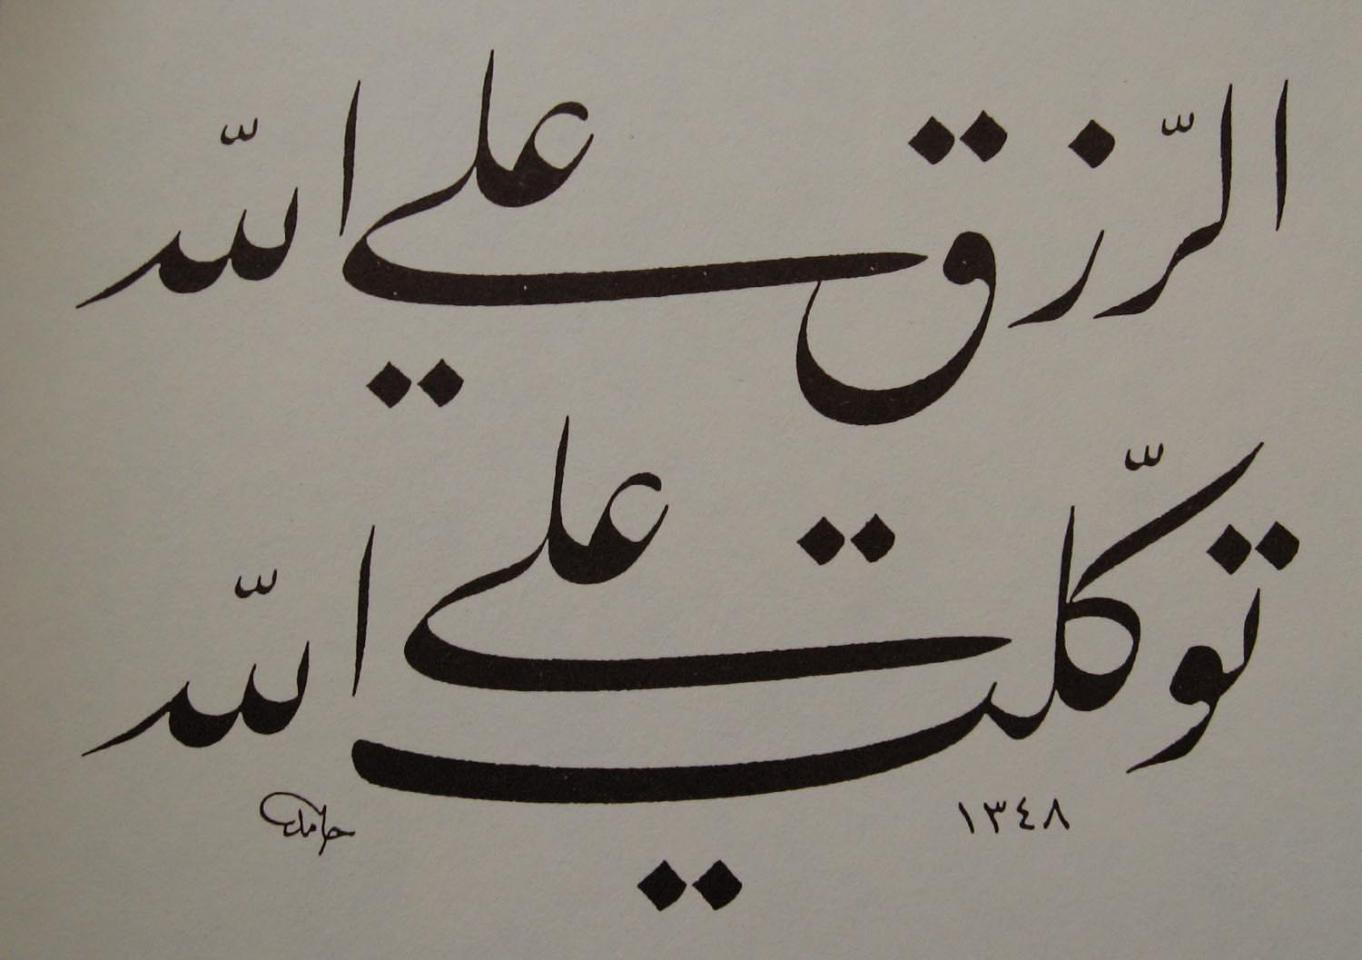 الرّزق علي اللّه
توكّلت علي اللّه
١٣٤٨
حامد